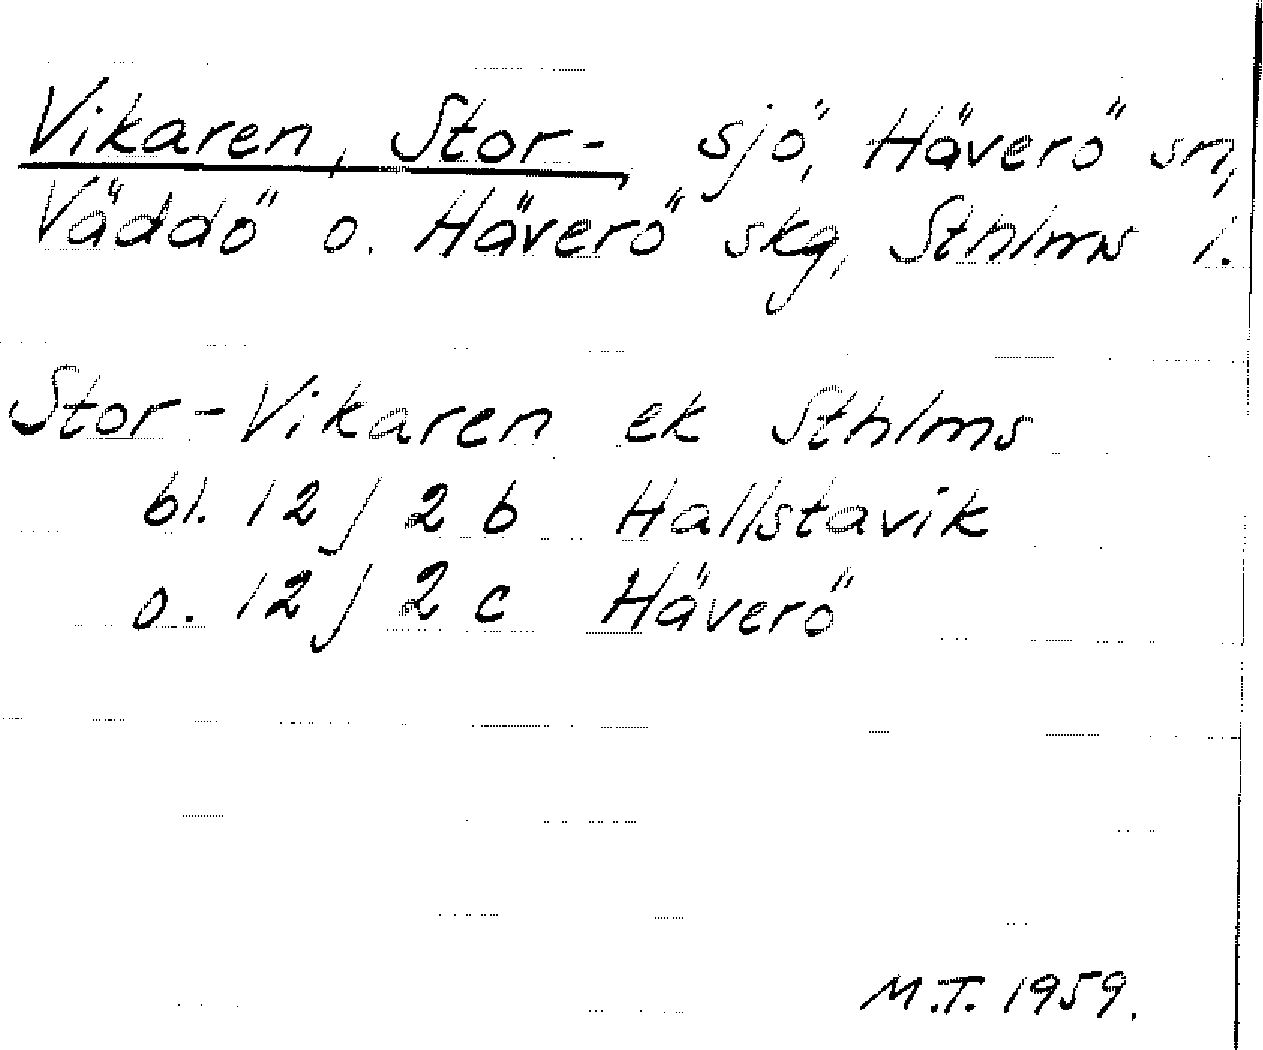 Vikaren, Stor-, sjö, Häverö sn,
Väddö o. Häverö skg, Sthlms l.
Stor-Vikaren ek Sthlms
bl. 12 J 2 b Hallstavik
o. 12 J 2 c Häverö
M.T. 1959.